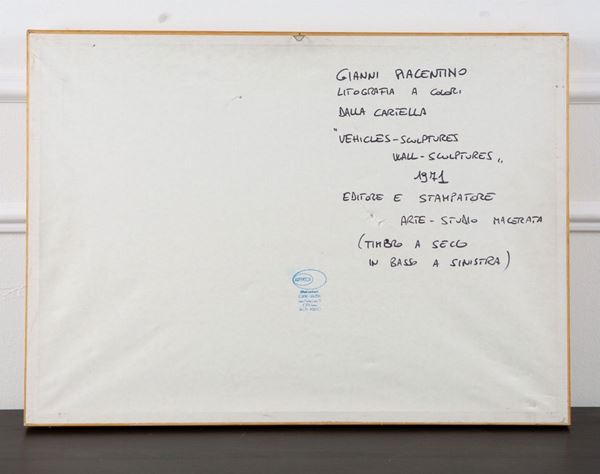 GIANNI PIACENTINO
LITOGRAFIA A COLORI
DALLA CARTELLA
"VEHICLES-SCULPTURES
WALL-SCULPTURES"
1971
EDITORE E STAMPATORE
ARTE-STUDIO MACERATA
(TIMBRO A SECCO
IN BASSO A SINISTRA)